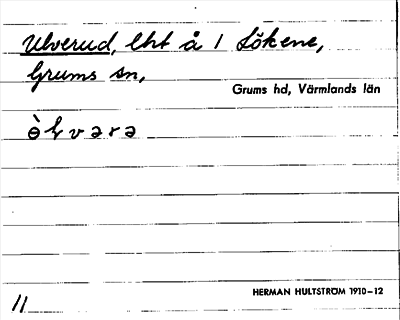 Ulverud, lht å 1 Sökene,
Grums sn,
Grums hd, Värmlands län
HERMAN HULTSTRÖM 1910–12
11